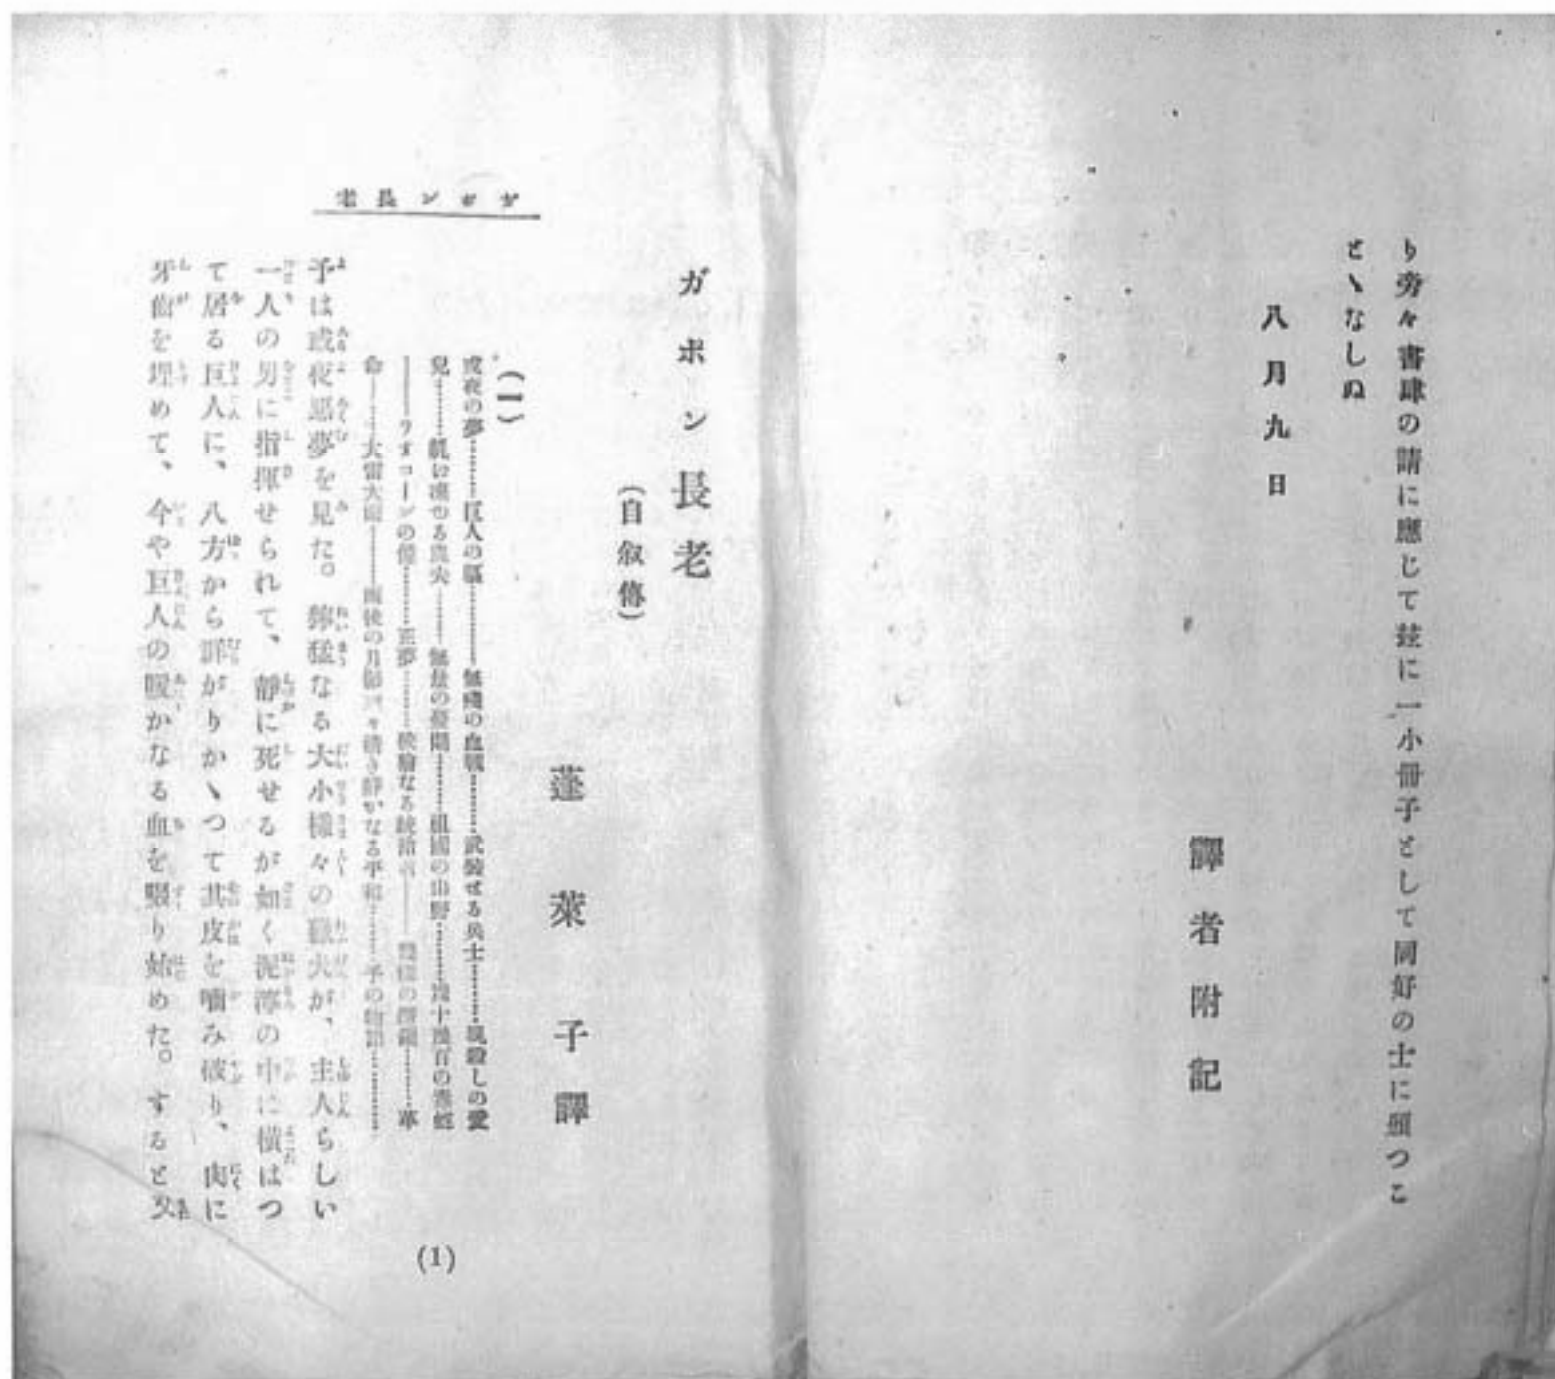 り旁々書肆の請に應じて玆に一小冊子として同好の士に頒つこ
とゝなしぬ
八月九日
譯者附記
ガポン長老
ガポン長老
(自叙傳)
蓬萊子譯
(一)
或夜の夢………巨人の軀………無殘の血戰………武裝せる兵士………の愛
兒………る農夫……無限の……祖國の山野………幾十幾百の毒蛇
——ラオコーンの像………正夢………なる統治者——………革
命——大雷大雨——雨後の月影……々淸き靜かなる平和……予の物語………
予は或夜惡夢を見た。獰猛なる大小樣々の獵犬が、主人らしい
一人の男に指揮せられて、靜に死せるが如く泥濘の中に橫はつ
て居る巨人に、八方から群がりかゝつて其皮を嚙み破り、肉に
牙齒を埋めて、今や巨人の暖かなる血を啜り始めた。すると又
(1)